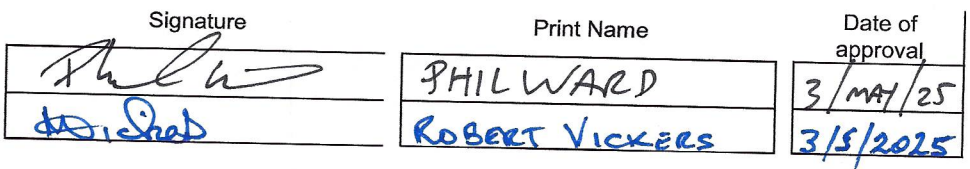 Signature Print Name Date of
approval
PHIL WARD 3/MAY/25
ROBERT VICKERS 3/5/2025